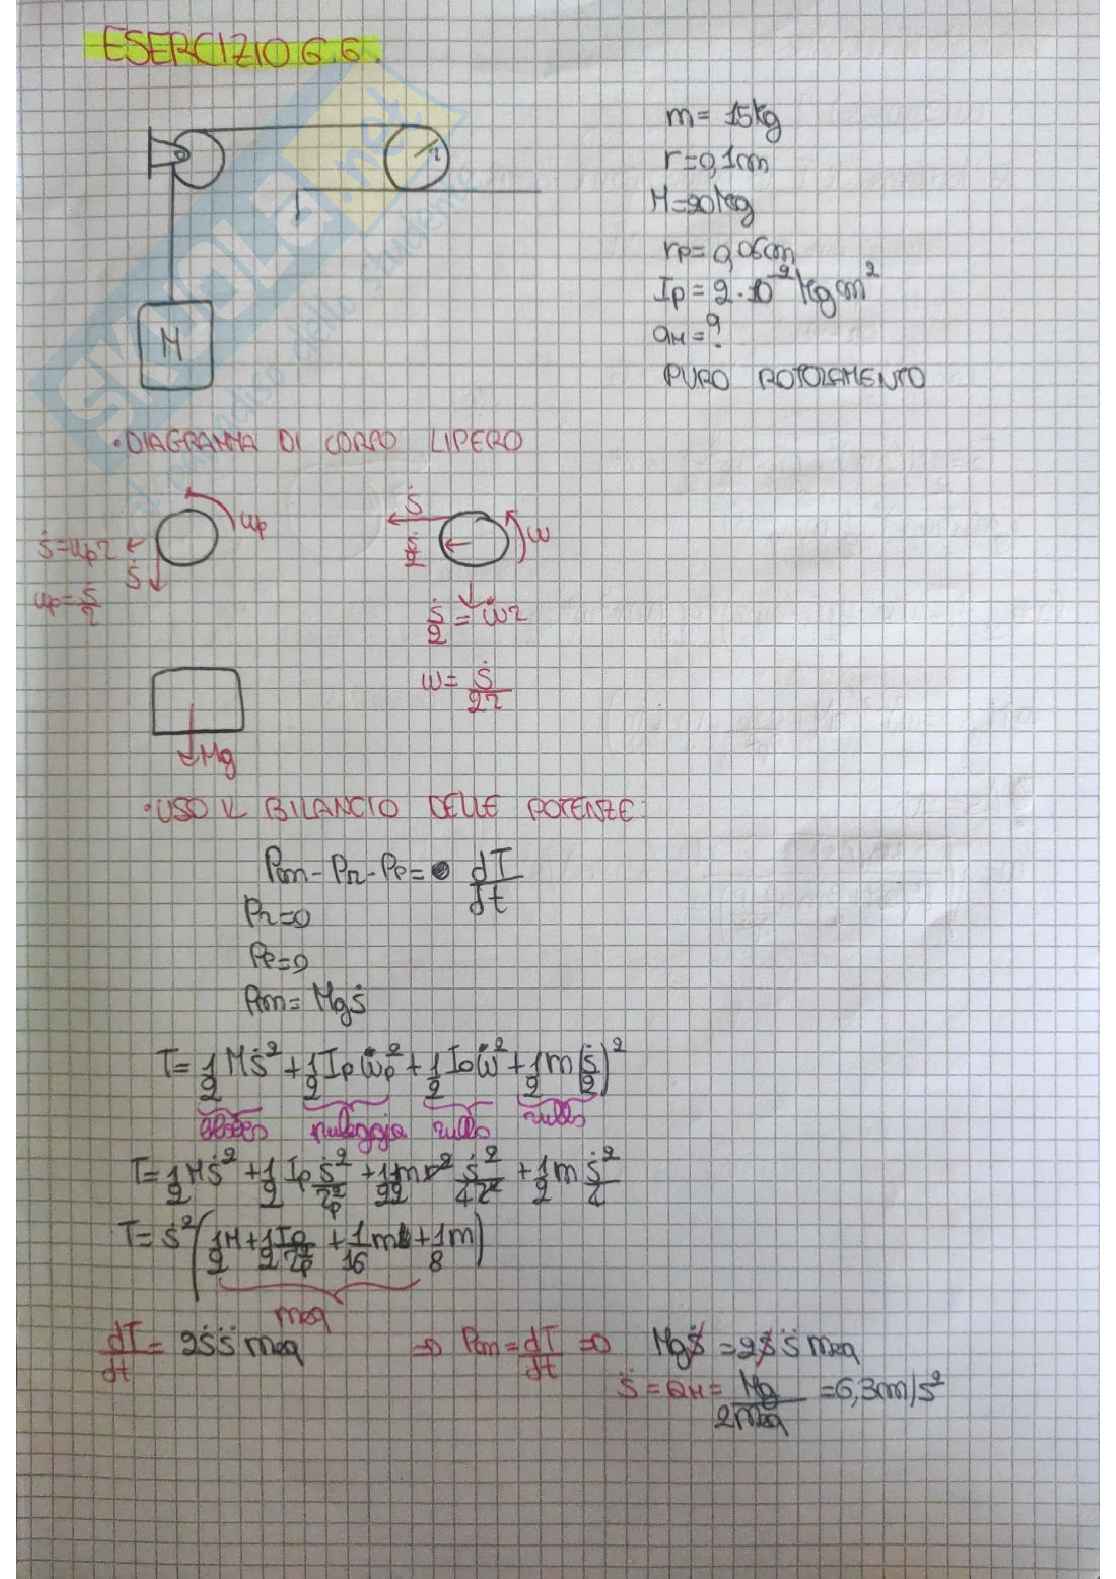 ESERCIZIO 6.6.
m= 15kg
r=0,1m
M=20kg
rp=0,05m
Ip=2·10⁻² kgm²
aM=?
PURO ROTOLAMENTO
r
M
SKUOLA.net
·DIAGRAMMA DI CORPO LIPERO
ωp
ṡ=ωpr
ṡ
ωp=ṡ/r
ṡ
ṡ/2
ω
ṡ/2=ωr
ω=ṡ/2r
Mg
·USO IL BILANCIO DELLE POTENZE:
Pm-Pr-Pp= dT/dt
Pr=0
Pp=0
Pm=Mgṡ
T=1/2Mṡ²+1/2Ipωp²+1/2Ioω²+1/2m(ṡ/2)²
puleggia rullo rullo
T=1/2Mṡ²+1/2Ip ṡ²/rp²+1/2 1/2mr² ṡ²/4r²+1/2m ṡ²/4
T=ṡ²(1/2M+1/2 Ip/rp²+1/16m+1/8m)
meq
dT/dt=2ṡs̈ meq ⇒ Pm=dT/dt ⇒ Mgṡ=2ṡs̈ meq
s̈=aM=Mg/2meq=6,3m/s²